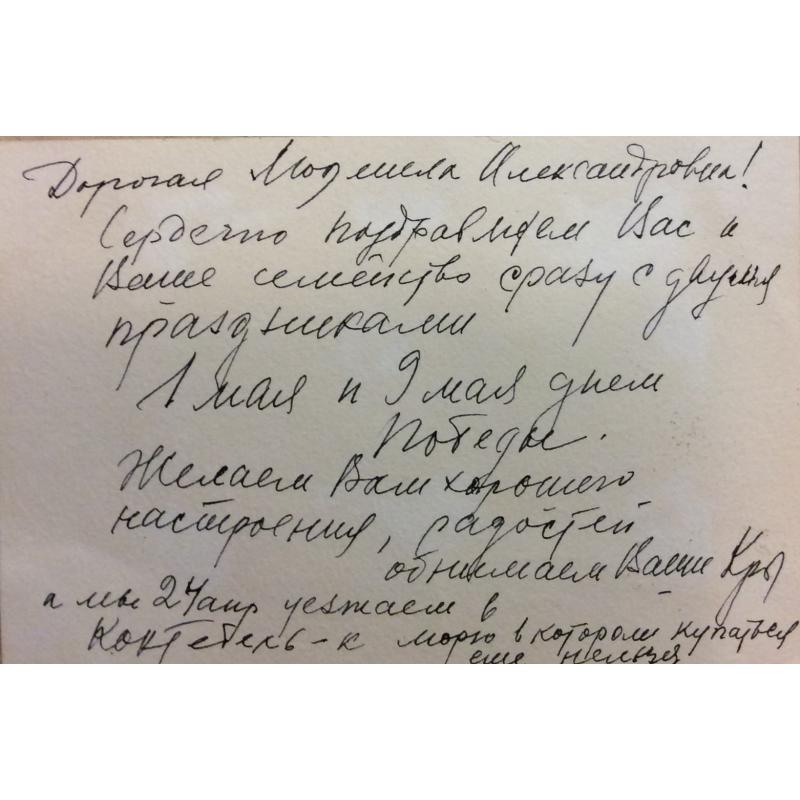 Дорогая Людмила Александровна!
Сердечно поздравляем Вас и
Ваше семейство сразу с двумя
праздниками
1 мая и 9 мая днем
Победы.
Желаем Вам хорошего
настроения, радостей
обнимаем Ваши Кры
а мы 24 апр уезжаем в
Коктебель - к морю в котором купаться
еще нельзя